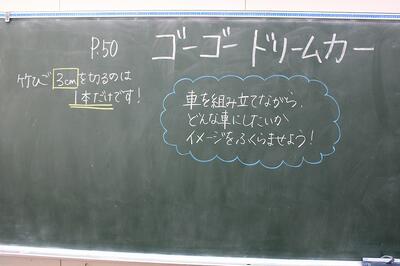 P.50
ゴーゴー ドリームカー
竹ひご 3cm を切るのは
1本だけです!
車を組み立てながら、
どんな車にしたいか
イメージをふくらませよう!